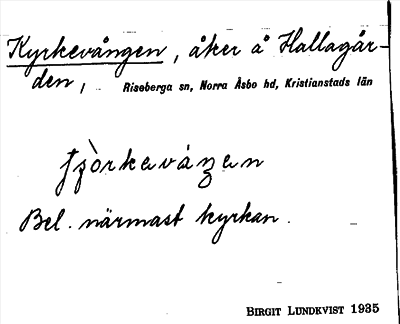 Kyrkevången, åker å Hallagår-
den, Riseberga sn, Norra Åsbo hd, Kristianstads län
fjòrkevåŋen
Bel. närmast kyrkan.
BIRGIT LUNDKVIST 1935